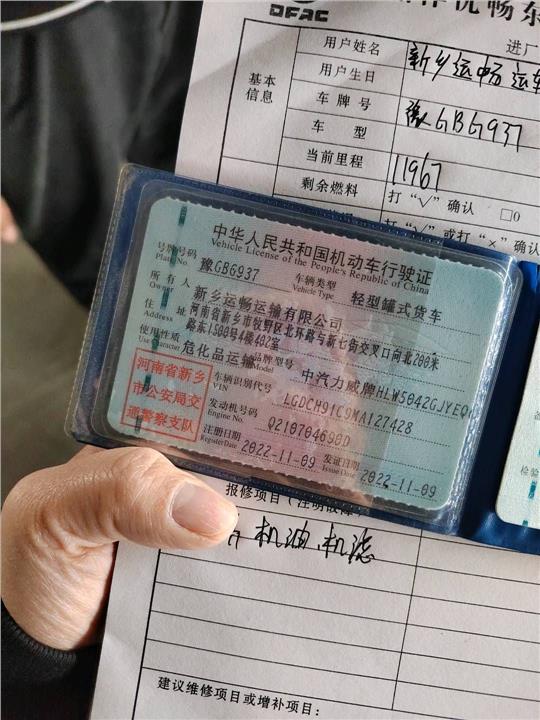 DFAC
优畅东
用户姓名 新乡运畅运
进厂
基本
信息
用户生日
车牌号 豫GBG937
车型
当前里程 11967
剩余燃料 打“√”确认 □0
打“√”或打“×”确认
中华人民共和国机动车行驶证
Vehicle License of the People's Republic of China
号牌号码 豫GBG937 车辆类型 轻型罐式货车
Plate No. Vehicle Type
所有人 新乡运畅运输有限公司
Owner
住址 河南省新乡市牧野区北环路与新七街交叉口向北200米
Address 路东1500号4楼402室
使用性质 危化品运输 品牌型号 中汽力威牌HLW5042GJYEQ6
Use Character Model
河南省新乡
市公安局交
通警察支队
车辆识别代号 LGDCH91G9MA127428
VIN
发动机号码 Q210704690D
Engine No.
注册日期 2022-11-09 发证日期 2022-11-09
Register Date Issue Date
检验
报修项目（注明故障）
机油、机滤
建议维修项目或增补项目：